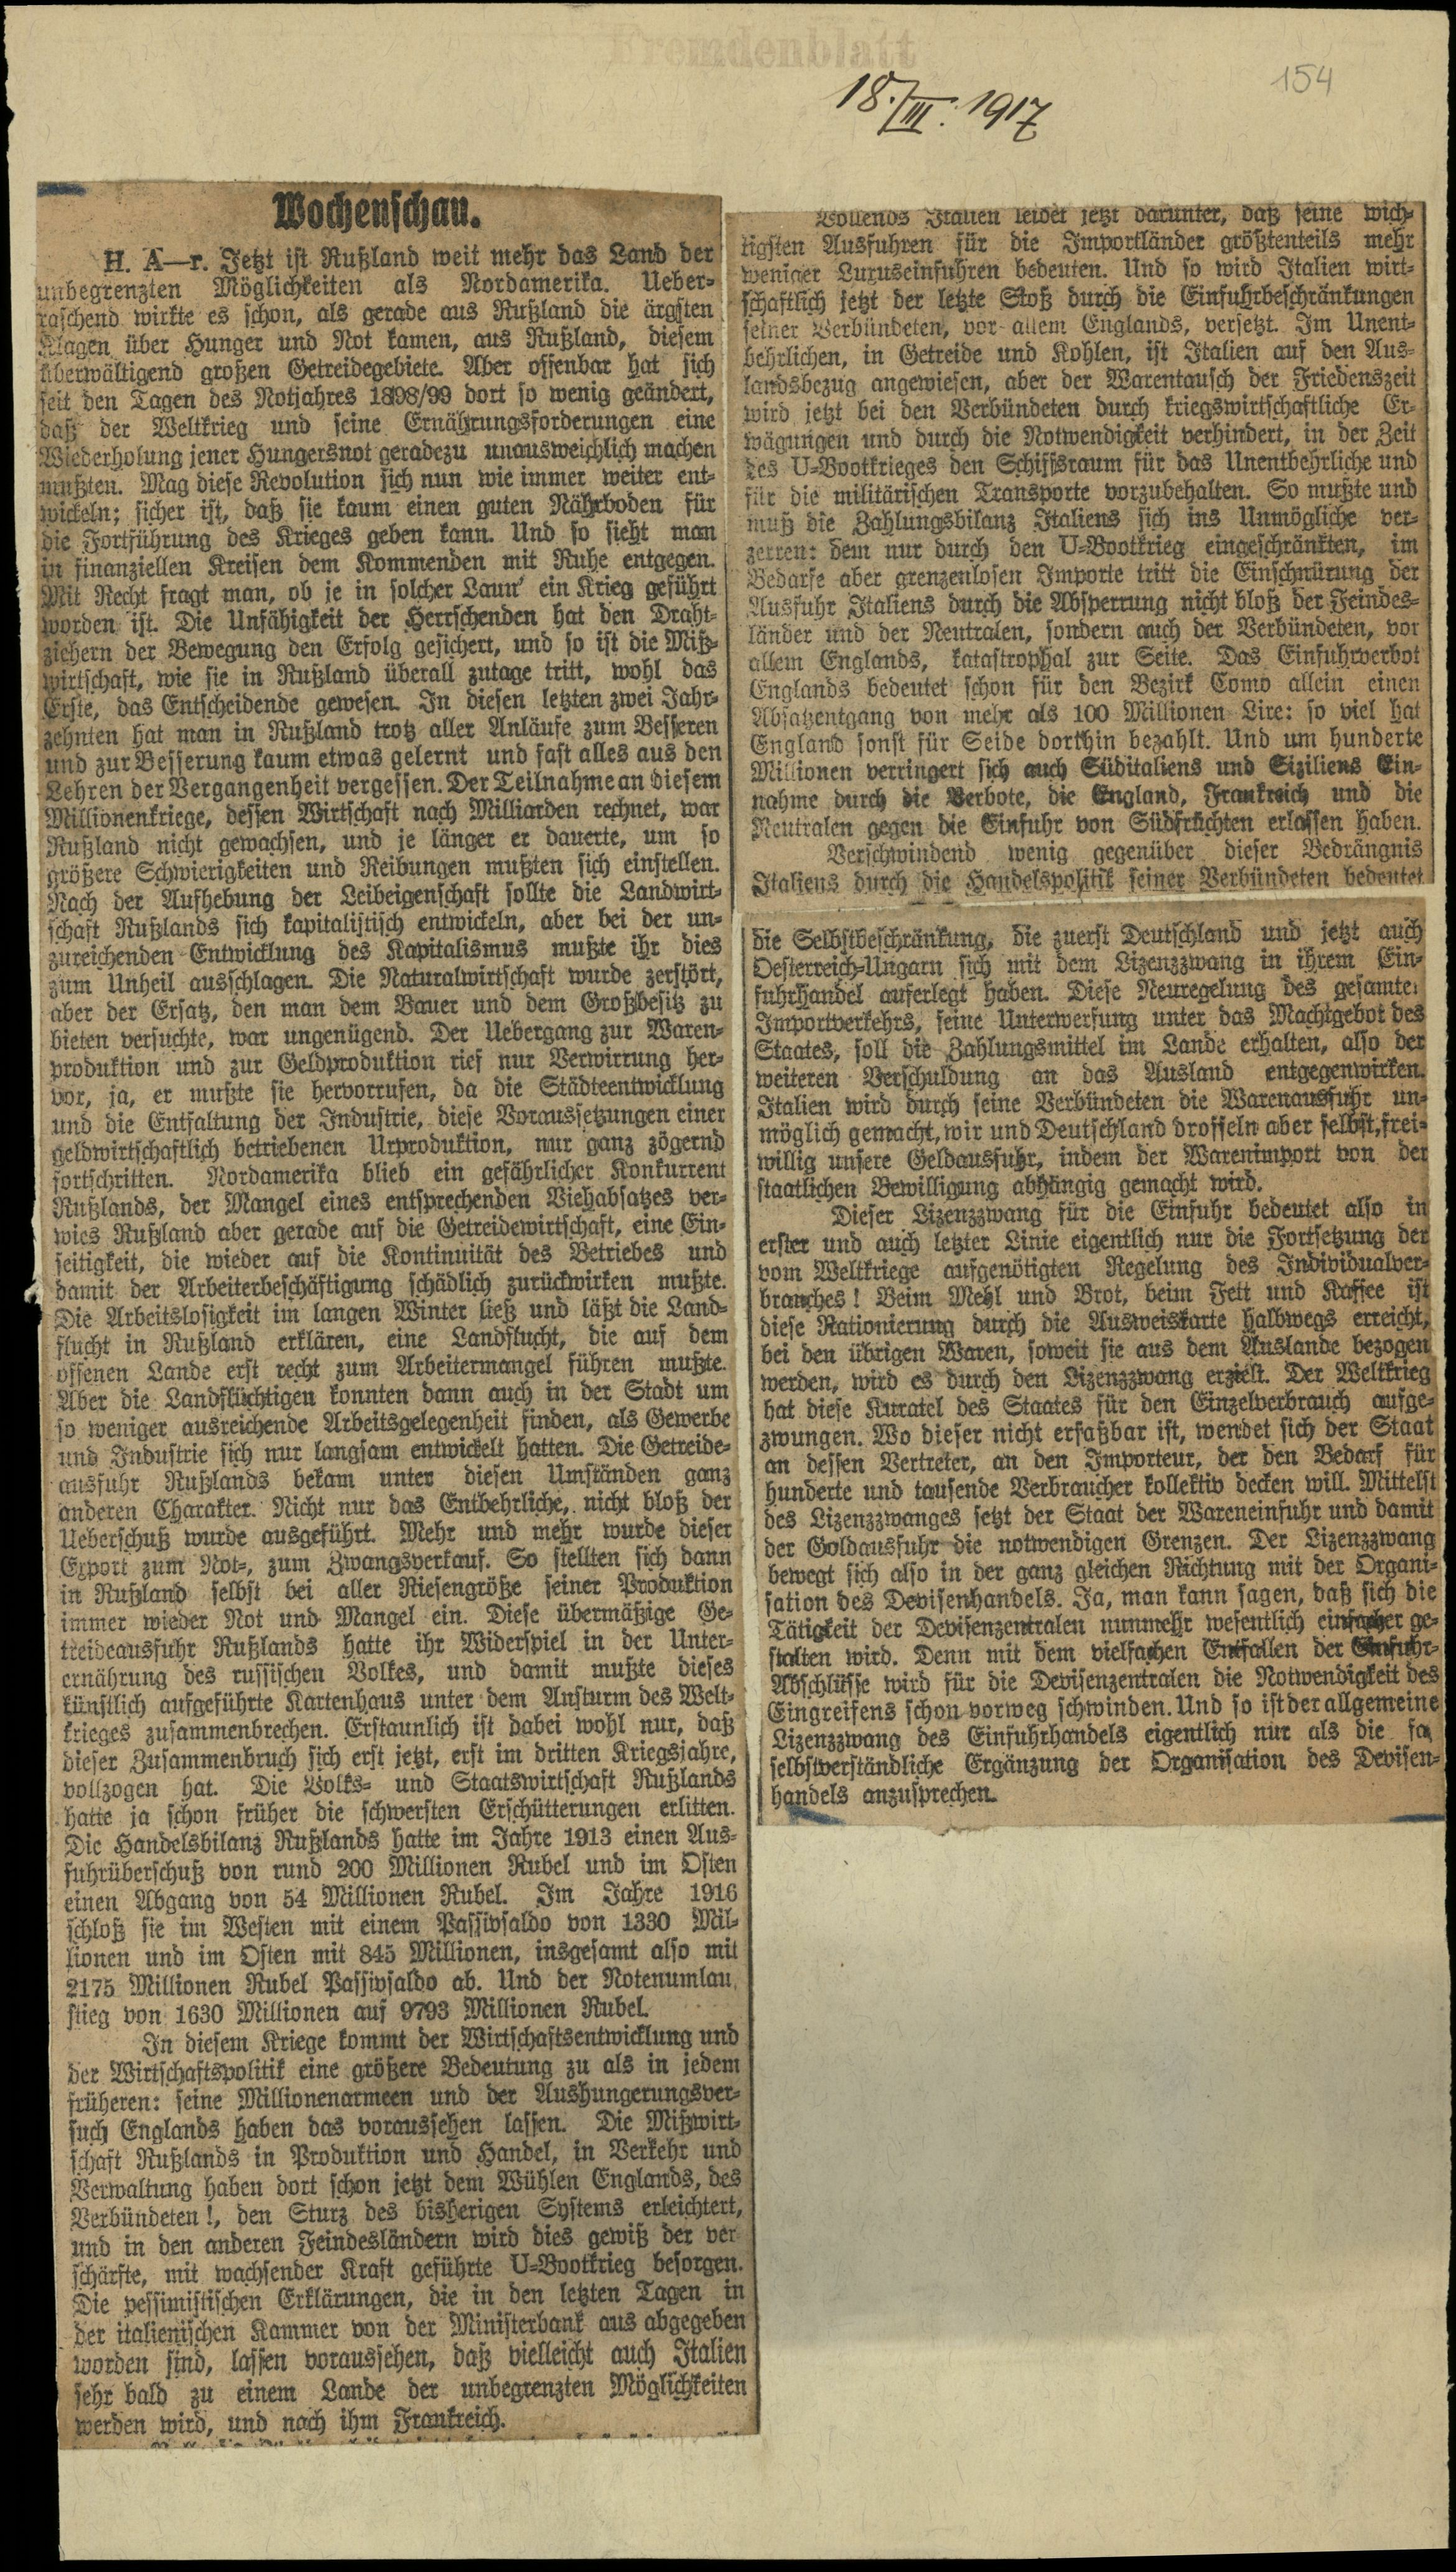 Fremdenblatt
18./III. 1917
154
Wochenschau.
H. A—r. Jetzt ist Rußland weit mehr das Land der
unbegrenzten Möglichkeiten als Nordamerika. Ueber-
raschend wirkte es schon, als gerade aus Rußland die ärgsten
Klagen über Hunger und Not kamen, aus Rußland, diesem
überwältigend großen Getreidegebiete. Aber offenbar hat sich
seit den Tagen des Notjahres 1898/99 dort so wenig geändert,
daß der Weltkrieg und seine Ernährungsforderungen eine
Wiederholung jener Hungersnot geradezu unausweichlich machen
mußten. Mag diese Revolution sich nun wie immer weiter ent-
wickeln; sicher ist, daß sie kaum einen guten Nährboden für
die Fortführung des Krieges geben kann. Und so sieht man
in finanziellen Kreisen dem Kommenden mit Ruhe entgegen.
Mit Recht fragt man, ob je in solcher Laun' ein Krieg geführt
worden ist. Die Unfähigkeit der Herrschenden hat den Draht-
ziehern der Bewegung den Erfolg gesichert, und so ist die Miß-
wirtschaft, wie sie in Rußland überall zutage tritt, wohl das
Erste, das Entscheidende gewesen. In diesen letzten zwei Jahr-
zehnten hat man in Rußland trotz aller Anläufe zum Besseren
und zur Besserung kaum etwas gelernt und fast alles aus den
Lehren der Vergangenheit vergessen. Der Teilnahme an diesem
Millionenkriege, dessen Wirtschaft nach Milliarden rechnet, war
Rußland nicht gewachsen, und je länger er dauerte, um so
größere Schwierigkeiten und Reibungen mußten sich einstellen.
Nach der Aufhebung der Leibeigenschaft sollte die Landwirt-
schaft Rußlands sich kapitalistisch entwickeln, aber bei der un-
zureichenden Entwicklung des Kapitalismus mußte ihr dies
zum Unheil ausschlagen. Die Naturalwirtschaft wurde zerstört,
aber der Ersatz, den man dem Bauer und dem Großbesitz zu
bieten versuchte, war ungenügend. Der Uebergang zur Waren-
produktion und zur Geldproduktion rief nur Verwirrung her-
vor, ja, er mußte sie hervorrufen, da die Städteentwicklung
und die Entfaltung der Industrie, diese Voraussetzungen einer
geldwirtschaftlich betriebenen Urproduktion, nur ganz zögernd
fortschritten. Nordamerika blieb ein gefährlicher Konkurrent
Rußlands, der Mangel eines entsprechenden Viehabsatzes ver-
wies Rußland aber gerade auf die Getreidewirtschaft, eine Ein-
seitigkeit, die wieder auf die Kontinuität des Betriebes und
damit der Arbeiterbeschäftigung schädlich zurückwirken mußte.
Die Arbeitslosigkeit im langen Winter ließ und läßt die Land-
flucht in Rußland erklären, eine Landflucht, die auf dem
offenen Lande erst recht zum Arbeitermangel führen mußte.
Aber die Landflüchtigen konnten dann auch in der Stadt um
so weniger ausreichende Arbeitsgelegenheit finden, als Gewerbe
und Industrie sich nur langsam entwickelt hatten. Die Getreide-
ausfuhr Rußlands bekam unter diesen Umständen ganz
anderen Charakter. Nicht nur das Entbehrliche, nicht bloß der
Ueberschuß wurde ausgeführt. Mehr und mehr wurde dieser
Export zum Not-, zum Zwangsverkauf. So stellten sich dann
in Rußland selbst bei aller Riesengröße seiner Produktion
immer wieder Not und Mangel ein. Diese übermäßige Ge-
treideausfuhr Rußlands hatte ihr Widerspiel in der Unter-
ernährung des russischen Volkes, und damit mußte dieses
künstlich aufgeführte Kartenhaus unter dem Ansturm des Welt-
krieges zusammenbrechen. Erstaunlich ist dabei wohl nur, daß
dieser Zusammenbruch sich erst jetzt, erst im dritten Kriegsjahre,
vollzogen hat. Die Volks- und Staatswirtschaft Rußlands
hatte ja schon früher die schwersten Erschütterungen erlitten.
Die Handelsbilanz Rußlands hatte im Jahre 1913 einen Aus-
fuhrüberschuß von rund 200 Millionen Rubel und im Osten
einen Abgang von 54 Millionen Rubel. Im Jahre 1916
schloß sie im Westen mit einem Passivsaldo von 1330 Mil-
lionen und im Osten mit 845 Millionen, insgesamt also mit
2175 Millionen Rubel Passivsaldo ab. Und der Notenumlau
stieg von 1630 Millionen auf 9793 Millionen Rubel.
In diesem Kriege kommt der Wirtschaftsentwicklung und
der Wirtschaftspolitik eine größere Bedeutung zu als in jedem
früheren: seine Millionenarmeen und der Aushungerungsver-
such Englands haben das voraussehen lassen. Die Mißwirt-
schaft Rußlands in Produktion und Handel, in Verkehr und
Verwaltung haben dort schon jetzt dem Wühlen Englands, des
Verbündeten!, den Sturz des bisherigen Systems erleichtert,
und in den anderen Feindesländern wird dies gewiß der ver
schärfte, mit wachsender Kraft geführte U-Bootkrieg besorgen.
Die pessimistischen Erklärungen, die in den letzten Tagen in
der italienischen Kammer von der Ministerbank aus abgegeben
worden sind, lassen voraussehen, daß vielleicht auch Italien
sehr bald zu einem Lande der unbegrenzten Möglichkeiten
werden wird, und nach ihm Frankreich.
Vollends Italien leidet jetzt darunter, daß seine wich-
tigsten Ausfuhren für die Importländer größtenteils mehr
weniger Luxuseinfuhren bedeuten. Und so wird Italien wirt-
schaftlich jetzt der letzte Stoß durch die Einfuhrbeschränkungen
seiner Verbündeten, vor allem Englands, versetzt. Im Unent-
behrlichen, in Getreide und Kohlen, ist Italien auf den Aus-
landsbezug angewiesen, aber der Warentausch der Friedenszeit
wird jetzt bei den Verbündeten durch kriegswirtschaftliche Er-
wägungen und durch die Notwendigkeit verhindert, in der Zeit
des U-Bootkrieges den Schiffsraum für das Unentbehrliche und
für die militärischen Transporte vorzubehalten. So mußte und
muß die Zahlungsbilanz Italiens sich ins Unmögliche ver-
zerren: dem nur durch den U-Bootkrieg eingeschränkten, im
Bedarfe aber grenzenlosen Importe tritt die Einschnürung der
Ausfuhr Italiens durch die Absperrung nicht bloß der Feindes-
länder und der Neutralen, sondern auch der Verbündeten, vor
allem Englands, katastrophal zur Seite. Das Einfuhrverbot
Englands bedeutet schon für den Bezirk Como allein einen
Absatzentgang von mehr als 100 Millionen Lire: so viel hat
England sonst für Seide dorthin bezahlt. Und um hunderte
Millionen verringert sich auch Süditaliens und Siziliens Ein-
nahme durch die Verbote, die England, Frankreich und die
Neutralen gegen die Einfuhr von Südfrüchten erlassen haben.
Verschwindend wenig gegenüber dieser Bedrängnis
Italiens durch die Handelspolitik seiner Verbündeten bedeutet
die Selbstbeschränkung, die zuerst Deutschland und jetzt auch
Oesterreich-Ungarn sich mit dem Lizenzzwang in ihrem Ein-
fuhrhandel auferlegt haben. Diese Neuregelung des gesamte
Importverkehrs, seine Unterwerfung unter das Machtgebot des
Staates, soll die Zahlungsmittel im Lande erhalten, also der
weiteren Verschuldung an das Ausland entgegenwirken.
Italien wird durch seine Verbündeten die Warenausfuhr un-
möglich gemacht, wir und Deutschland drosseln aber selbst, frei-
willig unsere Geldausfuhr, indem der Warenimport von der
staatlichen Bewilligung abhängig gemacht wird.
Dieser Lizenzzwang für die Einfuhr bedeutet also in
erster und auch letzter Linie eigentlich nur die Fortsetzung der
vom Weltkriege aufgenötigten Regelung des Individualver-
brauches! Beim Mehl und Brot, beim Fett und Kaffee ist
diese Rationierung durch die Ausweiskarte halbwegs erreicht,
bei den übrigen Waren, soweit sie aus dem Auslande bezogen
werden, wird es durch den Lizenzzwang erzielt. Der Weltkrieg
hat diese Kuratel des Staates für den Einzelverbrauch aufge-
zwungen. Wo dieser nicht erfaßbar ist, wendet sich der Staat
an dessen Vertreter, an den Importeur, der den Bedarf für
hunderte und tausende Verbraucher kollektiv decken will. Mittelst
des Lizenzzwanges setzt der Staat der Wareneinfuhr und damit
der Goldausfuhr die notwendigen Grenzen. Der Lizenzzwang
bewegt sich also in der ganz gleichen Richtung mit der Organi-
sation des Devisenhandels. Ja, man kann sagen, daß sich die
Tätigkeit der Devisenzentralen nunmehr wesentlich einfacher ge-
stalten wird. Denn mit dem vielfachen Entfallen der Einfuhr-
Abschlüsse wird für die Devisenzentralen die Notwendigkeit des
Eingreifens schon vorweg schwinden. Und so ist der allgemeine
Lizenzzwang des Einfuhrhandels eigentlich nur als die fa
selbstverständliche Ergänzung der Organisation des Devisen-
handels anzusprechen.